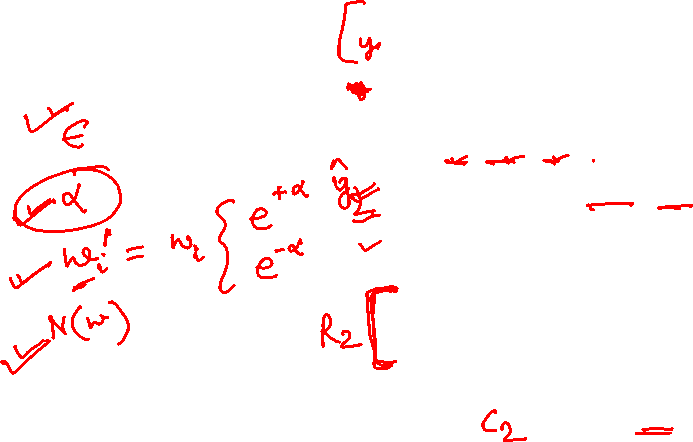 [y
∈
α
w_i' = w_i { e^{+α} ŷ_2
e^{-α}
N(w)
R_2 [
C_2